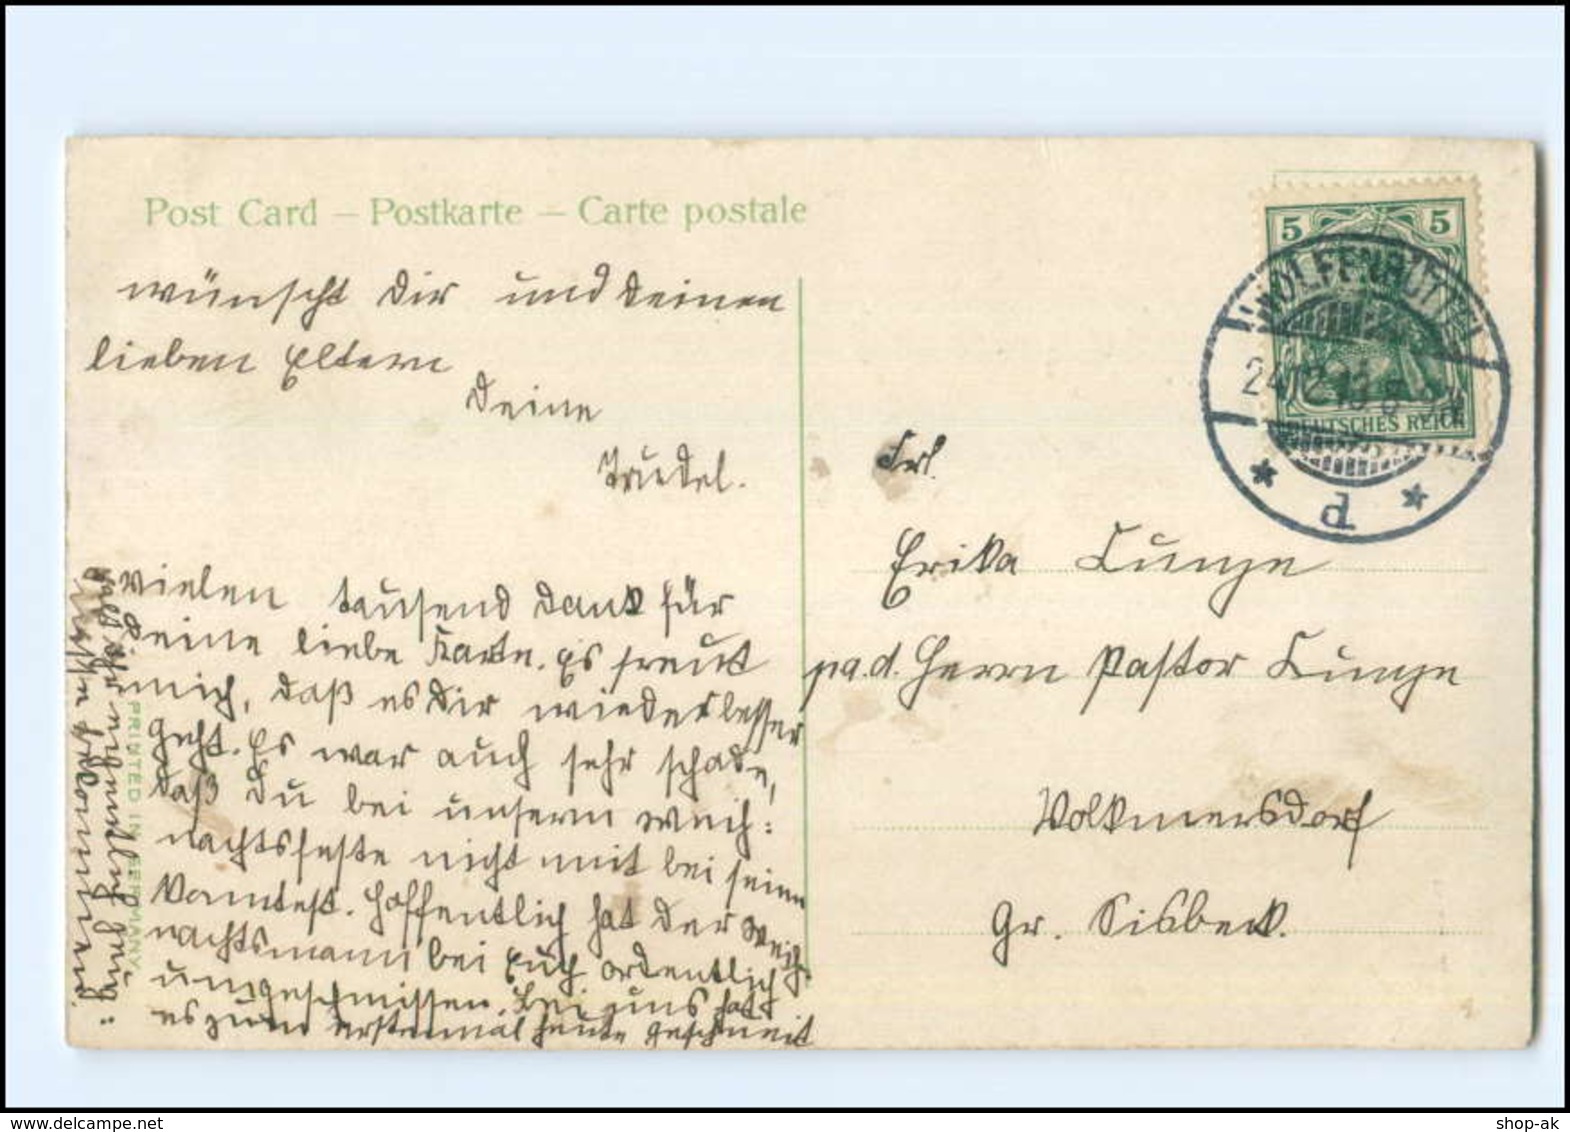 Post Card – Postkarte – Carte postale
wünscht Dir und Deinen
lieben Eltern
Deine
Trudel.
Vielen tausend Dank für
Deine liebe Karte. Es freut
mich, daß es Dir wieder besser
geht. Es war auch sehr schade,
daß Du bei unserm Weih:
nachtsfeste nicht mit bei seien
konntest. Hoffentlich hat der Weih:
nachtsmann bei Euch ordentlich
umgeschmissen. Bei uns hat
es zum erstenmal heute geschneit
PRINTED IN GERMANY
5 5
DEUTSCHES REICH
WOLFENBÜTTEL
24.12.10.
* d *
Frl.
Erika Kunze
p.a.d. Herrn Pastor Kunze
Volkmersdorf
Gr. Sisbeck.
shop-ak